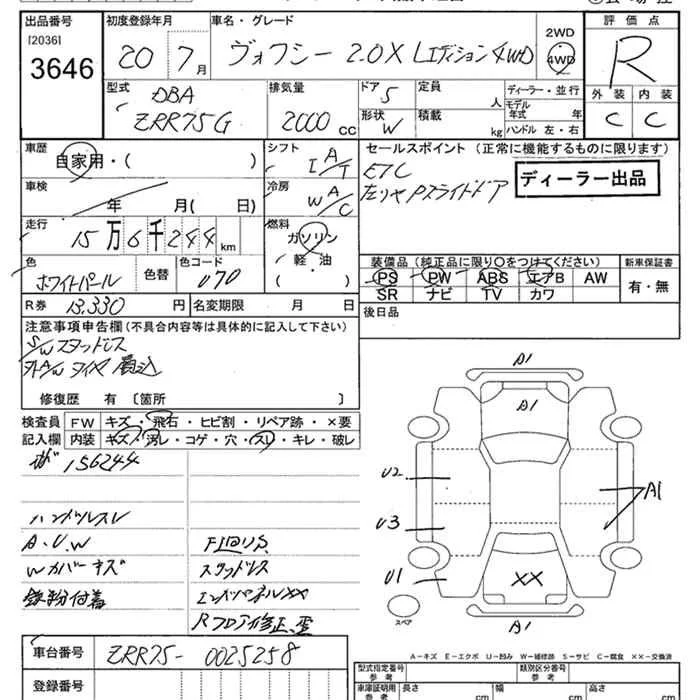 出品番号
[2036]
3646
初度登録年月
20 7月
車名・グレード
ヴォクシー 2.0X Lエディション 4WD
2WD
4WD
評価点
R
外装 内装
C C
型式
DBA
ZRR75G
排気量
2000 cc
ドア 5
形状 W
定員 人
積載 kg
ディーラー・並行
モデル年式 年
ハンドル 左・右
車歴
自家用・( )
シフト
I A/T
セールスポイント (正常に機能するものに限ります)
ETC
左リヤPスライドドア
ディーラー出品
車検
年 月( 日)
冷房
W A/C
走行
15万6千244 km
燃料
ガソリン
軽・油
( )
色
ホワイトパール
色替
色コード
070
装備品 (純正品に限り○をつけてください)
PS PW ABS エアB AW
SR ナビ TV カワ
新車保証書
有・無
R券 13,330 円
名変期限 月 日
後日品
注意事項申告欄(不具合内容等は具体的に記入して下さい)
S/Wスタッドレス
外A/Wタイヤ 積込
修復歴 有 〔箇所
検査員
記入欄
FW キズ・飛石・ヒビ割・リペア跡・×要
内装 キズ・汚レ・コゲ・穴・スレ・キレ・破レ
156244
ハンドルスレ
A.U.W
Wカバーキズ
鉄粉付着
スタッドレス
エンドパネルXX
Rフロア修正歪
A1
A1
U2
U3
U1
A1
XX
A1
スペア
A-キズ E-エクボ U-凹み W-補修跡 S-サビ C-腐食 XX-交換済
車台番号
ZRR75-0025258
登録番号
型式指定番号
参考
類別区分番号
参考
車庫証明用
参考
長さ cm
幅 cm
高さ cm